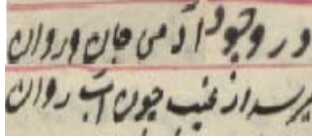 در وجود آدمی جان و روان
میرسد از غیب چون آب روان